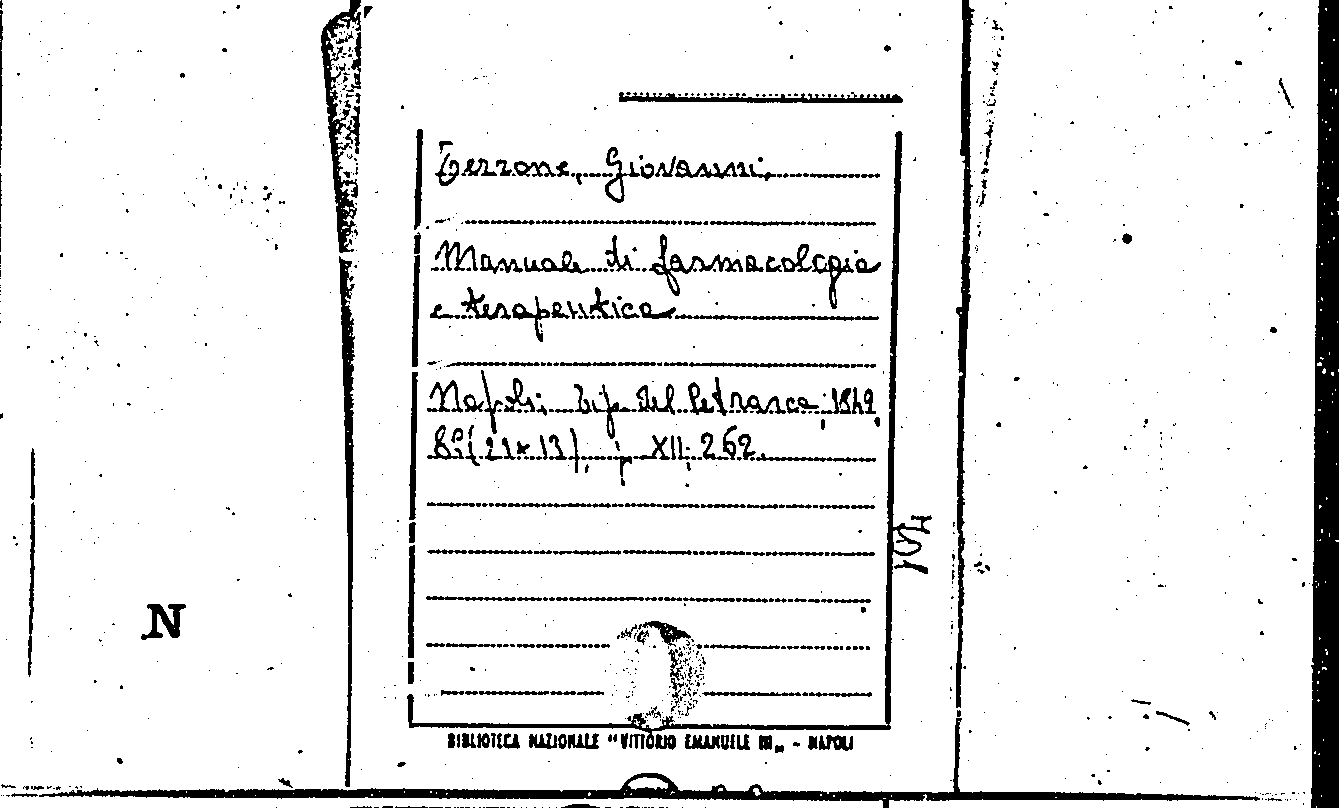 Terrone, Giovanni,
Manuale di farmacologia
e terapeutica
Napoli; Tip. del Petrarca, 1849,
8º (21×13), p. XII, 262.
N
BIBLIOTECA NAZIONALE "VITTORIO EMANUELE III„ - NAPOLI